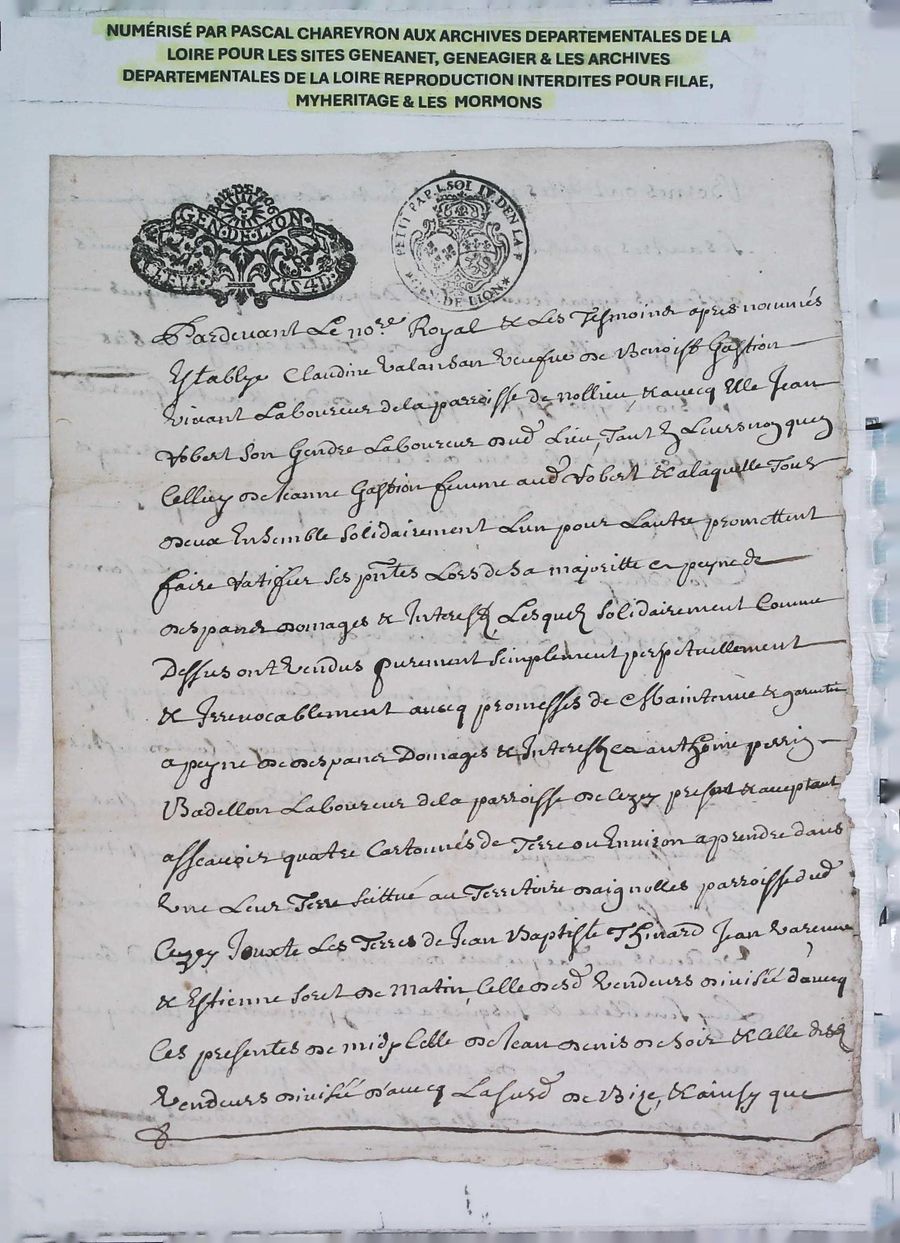 NUMÉRISÉ PAR PASCAL CHAREYRON AUX ARCHIVES DEPARTEMENTALES DE LA
LOIRE POUR LES SITES GENEANET, GENEAGIER & LES ARCHIVES
DEPARTEMENTALES DE LA LOIRE REPRODUCTION INTERDITES POUR FILAE,
MYHERITAGE & LES MORMONS
GEN·DE·LION
PETIT PAP. 1. SOL IV. DEN LA F
GEN. DE LION
Pardevant Le no.re Royal & Les Tesmoins apres nommés
Establye Claudine Valansan veufve de Benoist Gastion
vivant Laboureur de la parroisse de nollieu, & avecq Elle Jean
Robert son Gendre Laboureur dud Lieu, Tant En Leurs noms quen
Celluy de Jeanne Gastion femme aud Robert & a laquelle Tous
deux Ensemble solidairement Lun pour Lautre promettent
faire Ratifier ses pntes Lors de sa majoritte a peyne de
despance domages & Interest, Lesquelz solidairement Comme
Dessus ont Vendus purement simplement perpetuellement
& Irrevocablement avecq promesses de Maintenue & garantie
a peyne de despance Domages & Interestz a anthoine perrin
Badellon Laboureur de la parroisse de Cezey present & aceptant
assavoir quatre Cartonnés de Terre ou Environ a prendre dans
Une Leur Terre scittué au Territoire daignolles parroisse dud
Cezey Jouxte Les Terres de Jean Baptiste Thinard Jean Varenne
& Estienne foret de Matin, Celle desd Vendeurs divisée davecq
Ces presentes de midy Celle de Jean denis de soir & Celle desd
Vendeurs divisée davecq La susd de Bize, & ainsy que